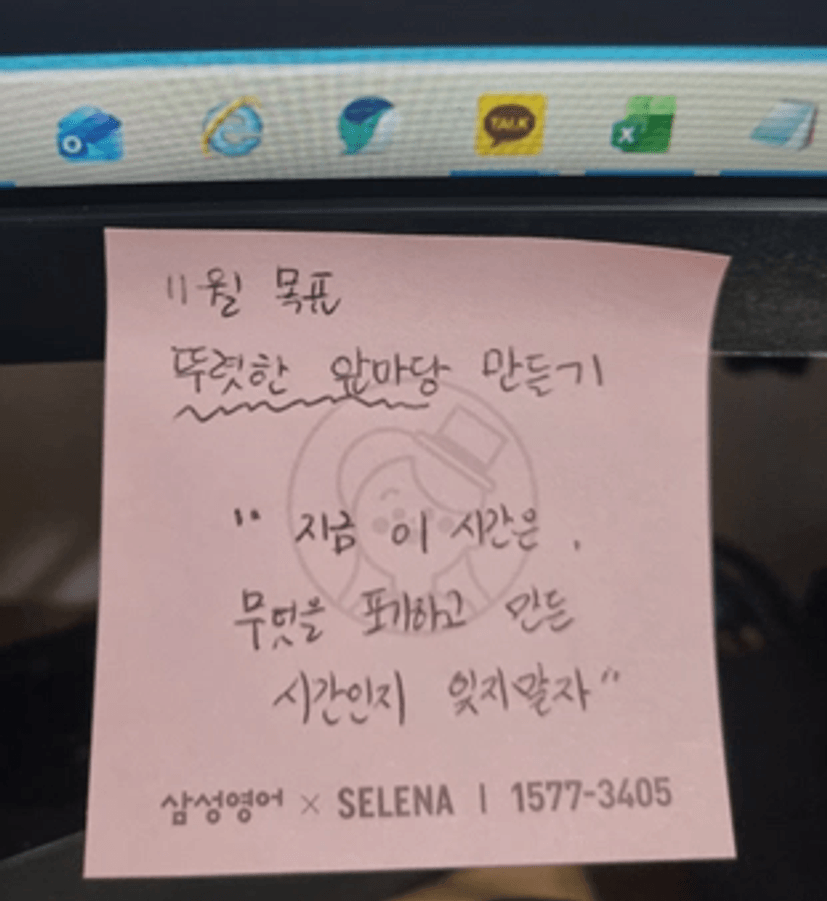 TALK
11월 목표
뚜렷한 앞마당 만들기
" 지금 이 시간은,
무엇을 포기하고 만든
시간인지 잊지말자"
삼성영어 × SELENA | 1577-3405